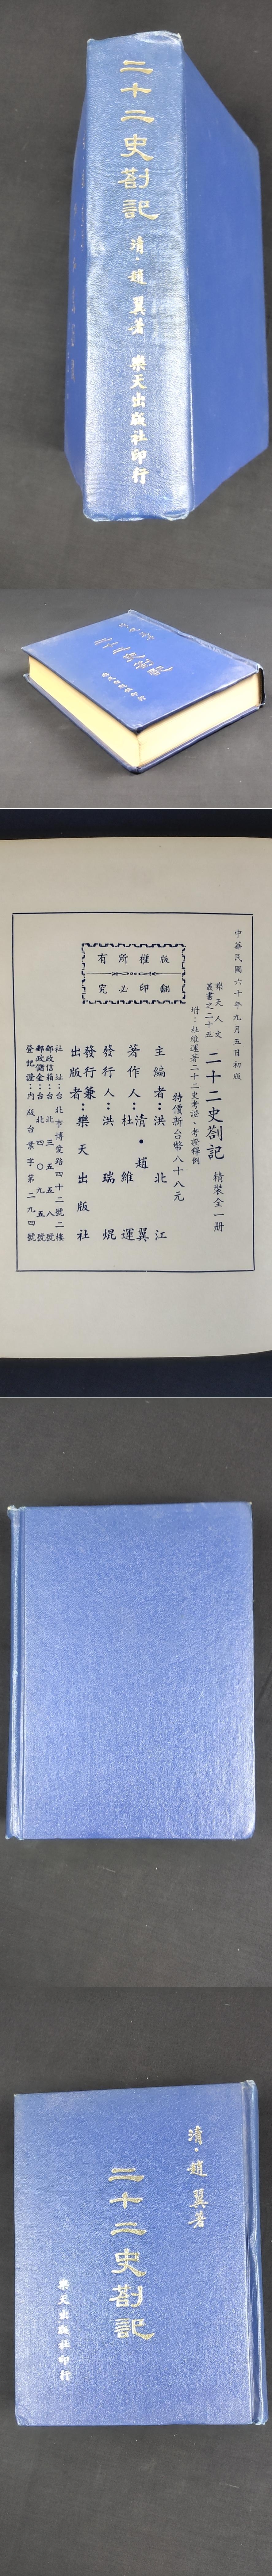 二十二史劄記 清·趙翼著 樂天出版社印行
中華民國六十年九月五日初版
樂天人文
叢書之二十五
二十二史劄記 精裝全一册
坿:杜維運著二十二史考證·考證釋例
特價新台幣八十八元
主編者:洪北江
著作人:清·趙翼
杜維運
發行人:洪瑞焜
發行兼
出版者:樂天出版社
社址:台北市博愛路四十二號二樓
郵政信箱:台北三五五八號
郵政儲金:台北四〇九五號
登記證:內版台業字第二九四號
版權所有
翻印必究
清·趙翼著
二十二史劄記
樂天出版社印行